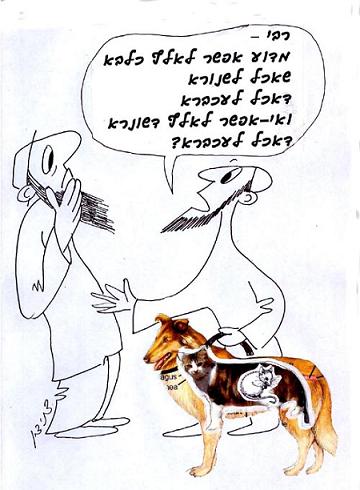 רבי –
מדוע אפשר לאלף כלבא
שאכל לשונרא
דאכל לעכברא
ואי-אפשר לאלף דשונרא
דאכל לעכברא?
agus -
nea